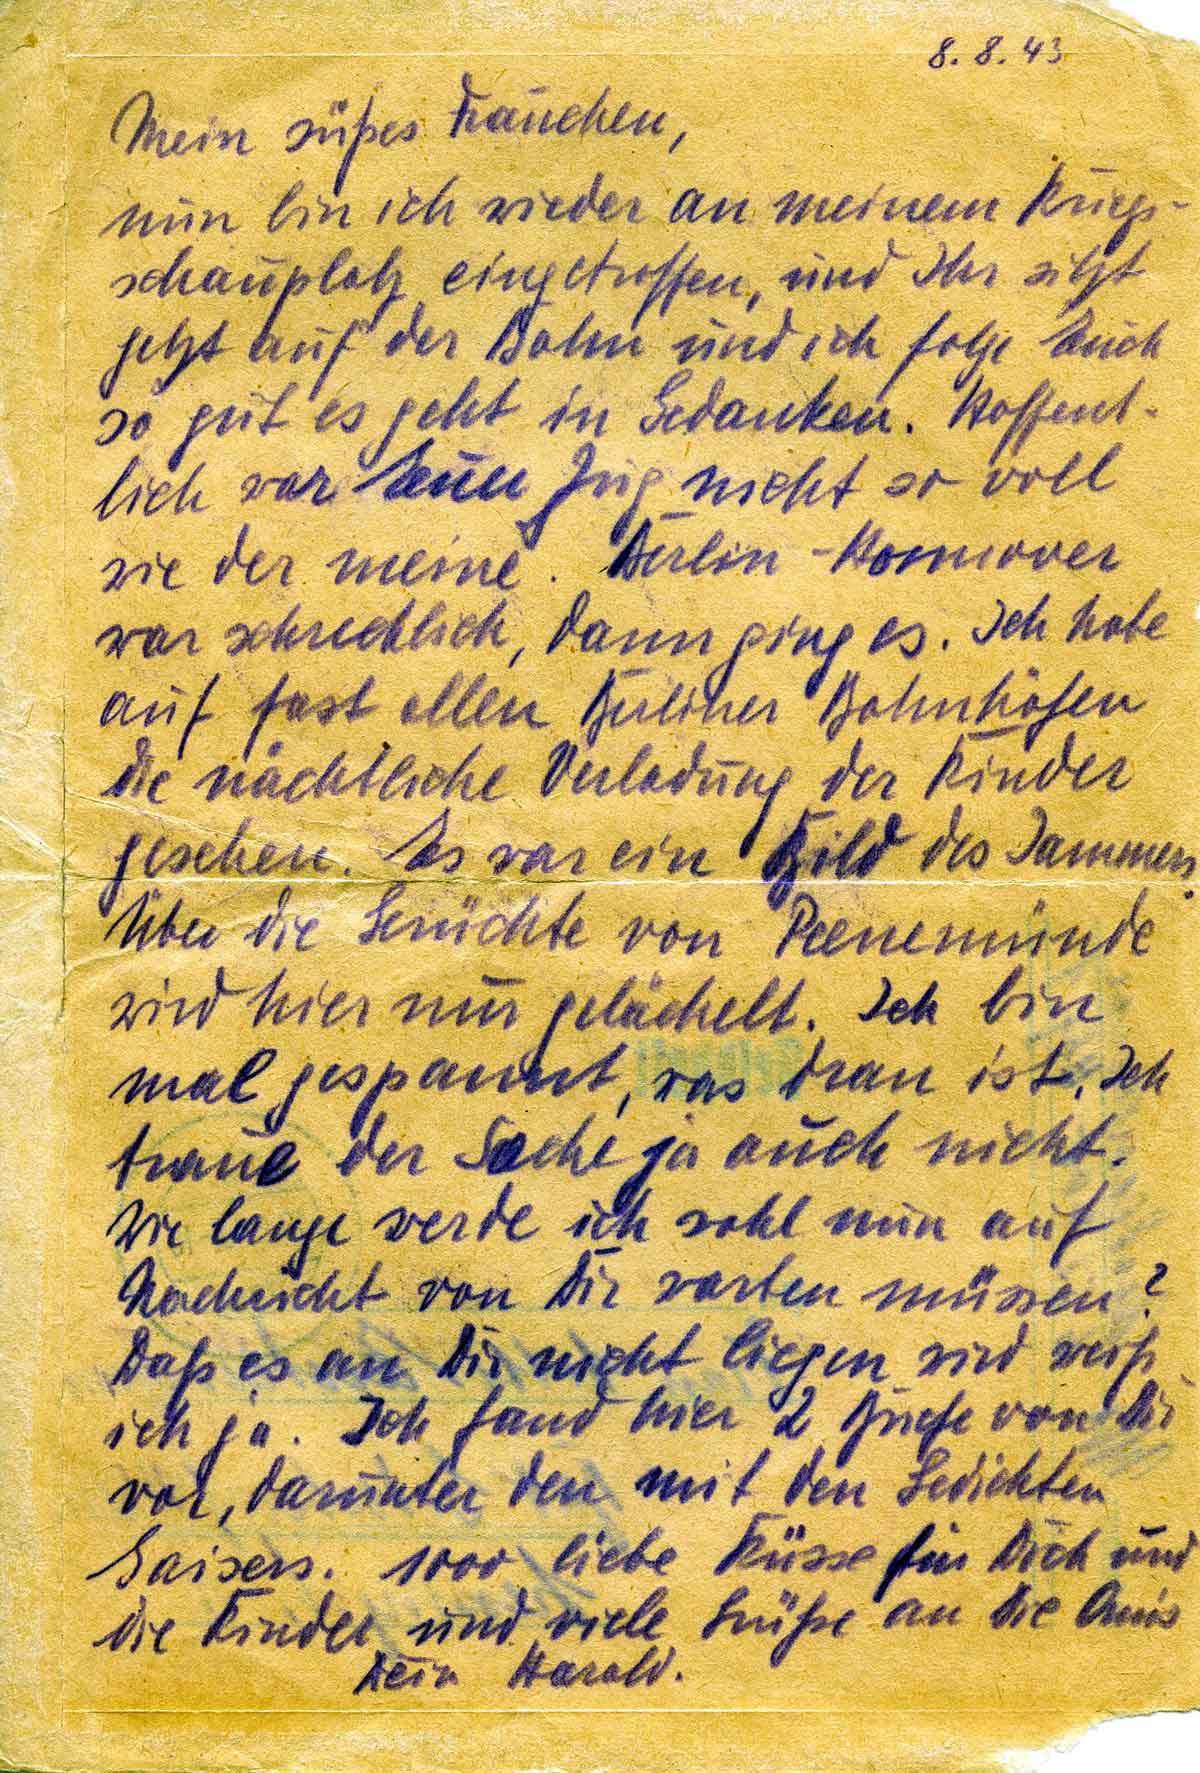 8. 8. 43
Mein süßes Frauchen,
nun bin ich wieder an meinem Kriegs-
schauplatz eingetroffen, und Ihr sitzt
jetzt auf der Bahn und ich folge Euch
so gut es geht in Gedanken. Hoffent-
lich war Euer Zug nicht so voll
wie der meine. Berlin - Hannover
war schrecklich, dann ging es. Ich habe
auf fast allen Berliner Bahnhöfen
die nächtliche Verladung der Kinder
gesehen. Es war ein Bild des Jammers.
Über die Gerüchte von Peenemünde
wird hier nur gelächelt. Ich bin
mal gespannt, was dran ist. Ich
traue der Sache ja auch nicht.
Wie lange werde ich wohl nun auf
Nachricht von Dir warten müssen?
Daß es an Dir nicht liegen wird weiß
ich ja. Ich fand hier 2 Briefe von Dir
vor, darunter den mit den Gedichten
Gaisers. 1000 liebe Küsse für Dich und
die Kinder und viele Grüße an die Omis
Dein Harald.